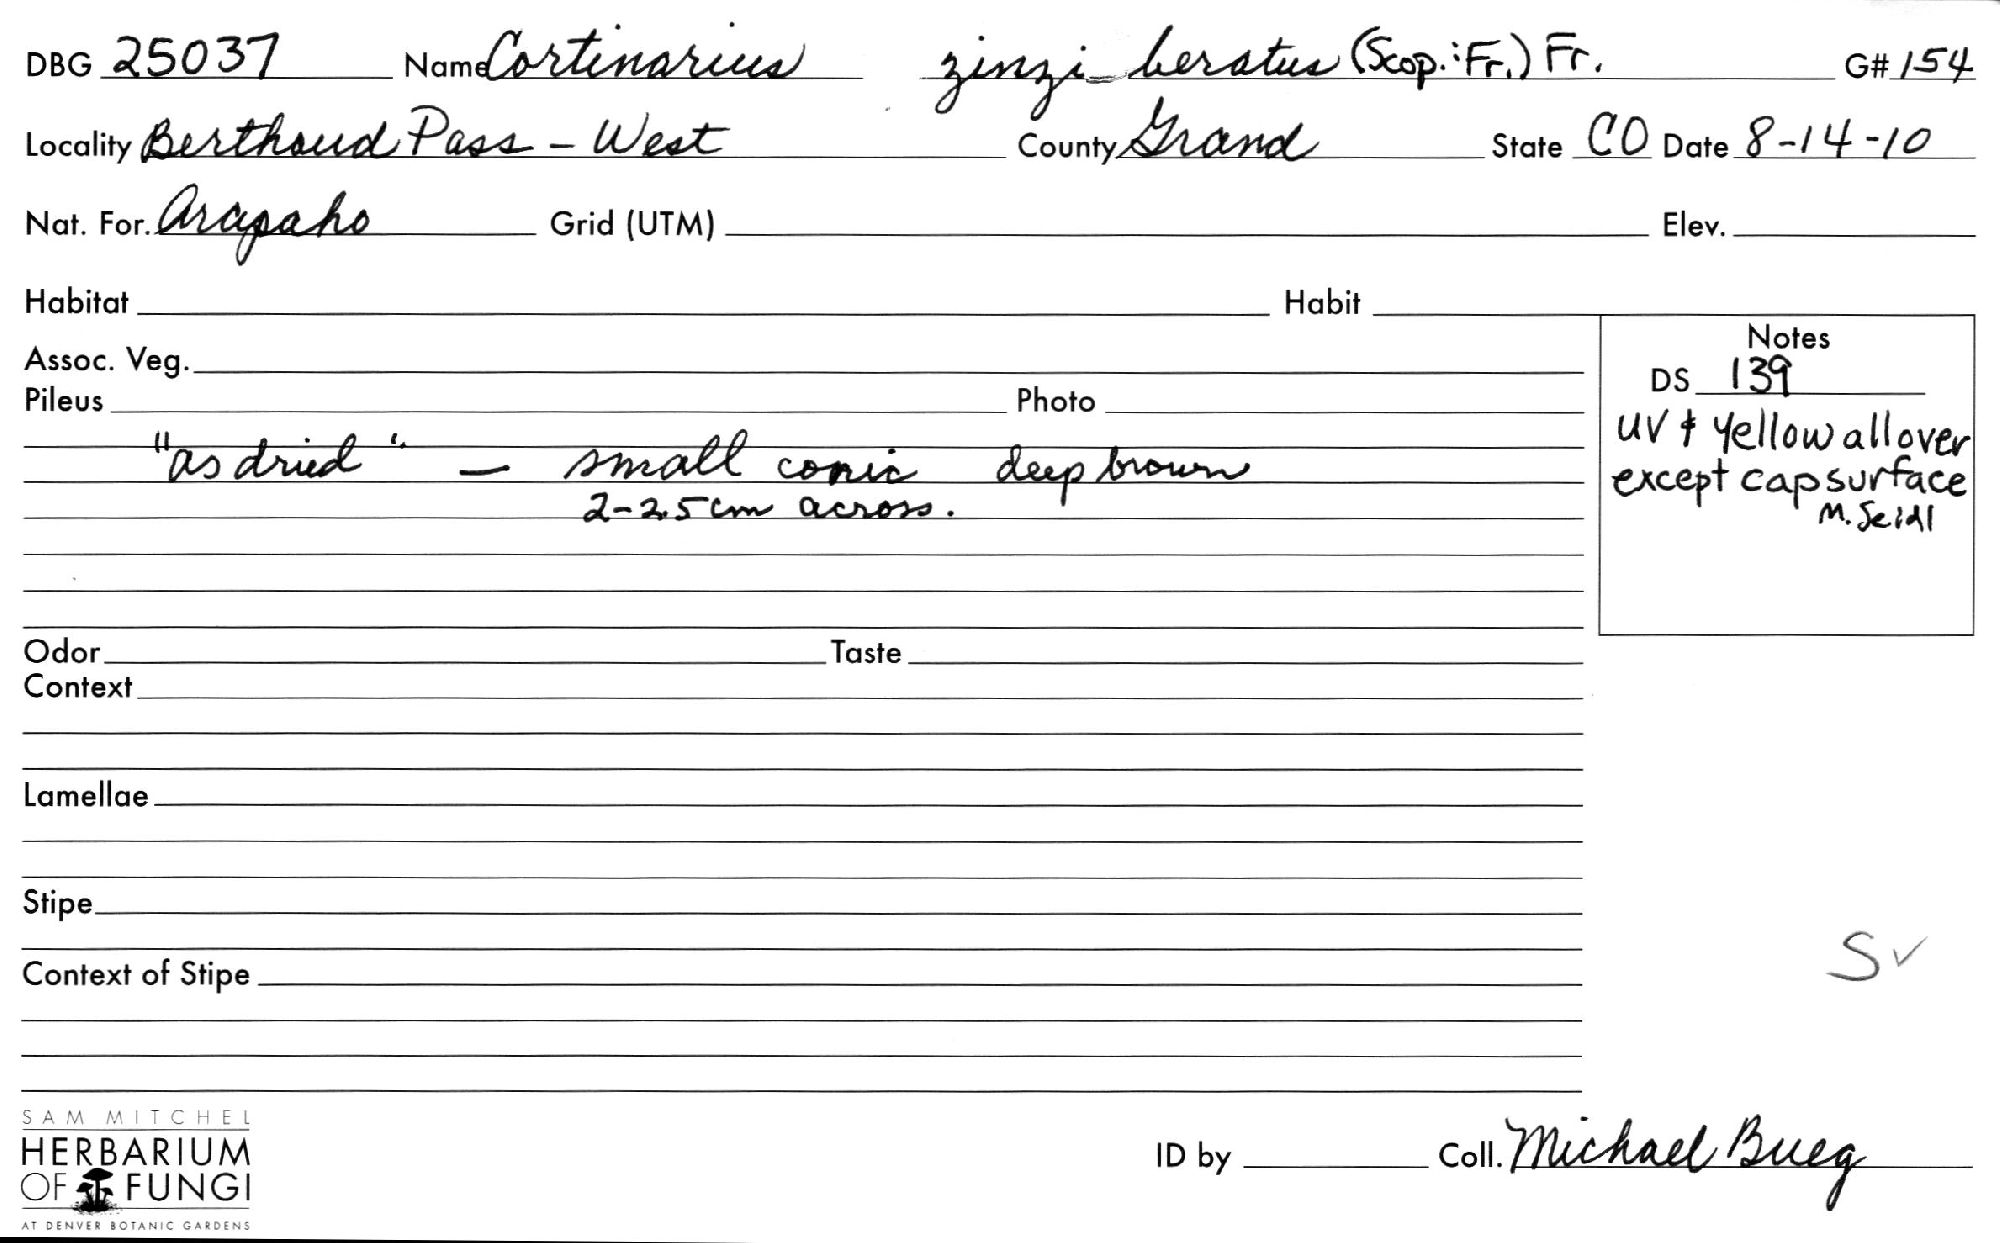 DBG 25037 Name Cortinarius zinzi beratus (Scop.:Fr.) Fr. G# 154
Locality Berthoud Pass - West County Grand State CO Date 8-14-10
Nat. For. Arapaho Grid (UTM) Elev.
Habitat Habit
Assoc. Veg.
Pileus Photo
"as dried" — small conic deep brown
2-2.5 cm across.
Notes
DS 139
UV + yellow all over
except cap surface
M. Seidl
Odor Taste
Context
Lamellae
Stipe
S✓
Context of Stipe
SAM MITCHEL
HERBARIUM
OF FUNGI
AT DENVER BOTANIC GARDENS
ID by Coll. Michael Bueg